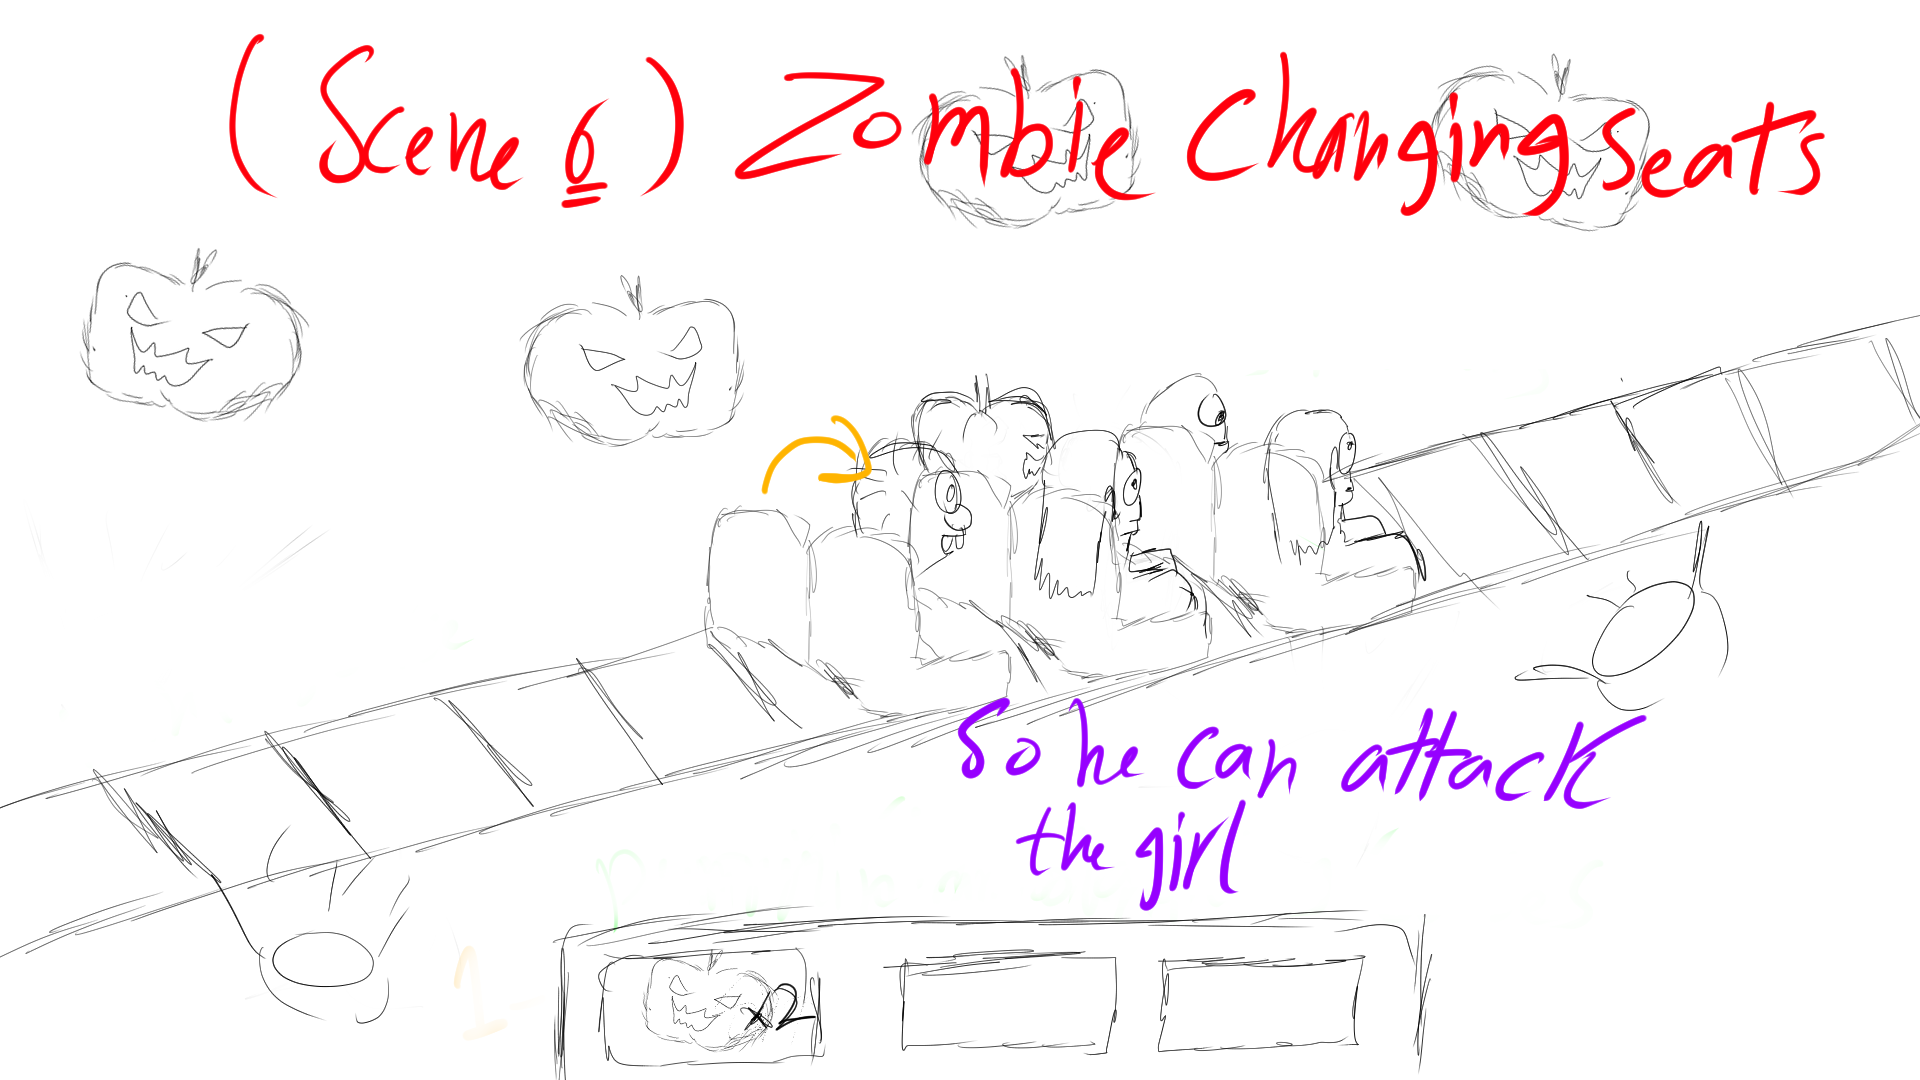 (Scene 6) Zombie Changing seats
So he can attack
the girl
x2